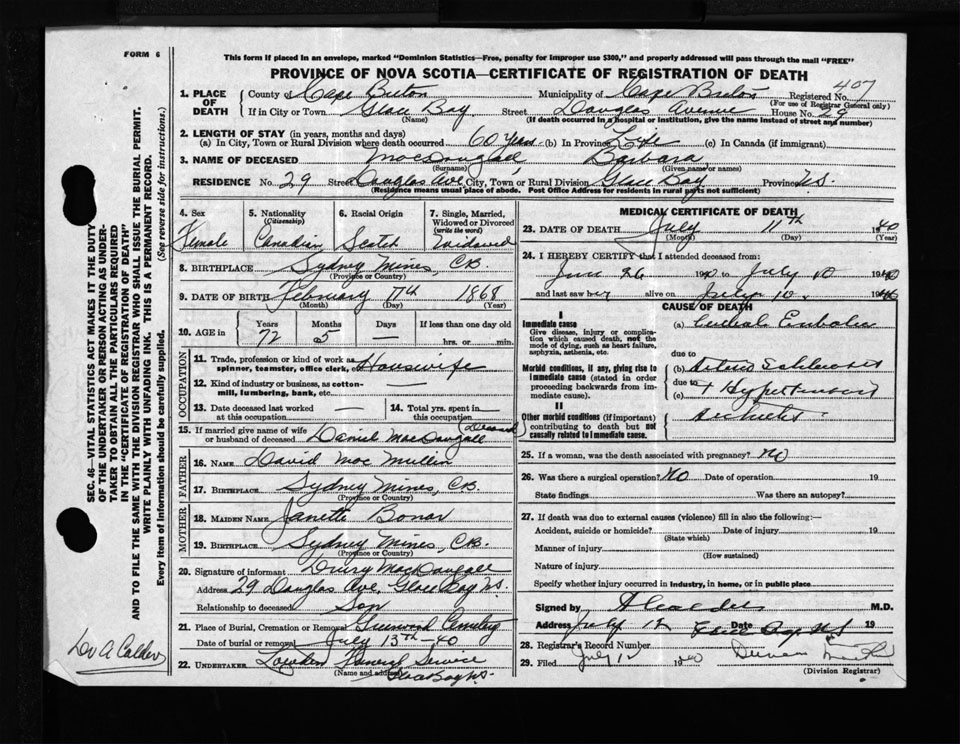 FORM 6
This form if placed in an envelope, marked "Dominion Statistics—Free, penalty for improper use $300," and properly addressed will pass through the mail "FREE"
PROVINCE OF NOVA SCOTIA—CERTIFICATE OF REGISTRATION OF DEATH
1. PLACE OF DEATH
County of Cape Breton Municipality of Cape Breton Registered No. 407
(For use of Registrar General only)
If in City or Town Glace Bay Street Douglas Avenue House No. 29
(Name) (If death occurred in a hospital or institution, give the name instead of street and number)
2. LENGTH OF STAY (in years, months and days)
(a) In City, Town or Rural Division where death occurred 60 Years (b) In Province Life (c) In Canada (if immigrant)
3. NAME OF DECEASED MacDougall, Barbara
(Surname) (Given name or names)
RESIDENCE No. 29 Street Douglas Ave, City, Town or Rural Division Glace Bay Province N.S.
(Residence means usual place of abode. Post Office Address for residents in rural parts not sufficient)
4. Sex
Female
5. Nationality (Citizenship)
Canadian
6. Racial Origin
Scotch
7. Single, Married, Widowed or Divorced (write the word)
Widowed
8. BIRTHPLACE Sydney Mines, C.B.
(Province or Country)
9. DATE OF BIRTH February 7th 1868
(Month) (Day) (Year)
10. AGE in Years Months Days If less than one day old
72 5 — hrs. or min.
OCCUPATION
11. Trade, profession or kind of work as spinner, teamster, office clerk, etc. Housewife
12. Kind of industry or business, as cotton-mill, lumbering, bank, etc. —
13. Date deceased last worked at this occupation —
14. Total yrs. spent in this occupation —
15. If married give name of wife or husband of deceased Daniel MacDougall (Deceased)
FATHER
16. NAME David Mac Mullin
17. BIRTHPLACE Sydney Mines, C.B.
(Province or Country)
MOTHER
18. MAIDEN NAME Janette Bonar
19. BIRTHPLACE Sydney Mines, C.B.
(Province or Country)
20. Signature of informant Drury MacDougall
Address 29 Douglas Ave, Glace Bay N.S.
Relationship to deceased Son
21. Place of Burial, Cremation or Removal Greenwood Cemetery
Date of burial or removal July 13th - 40
22. UNDERTAKER Funeral Service
(Name and address) Glace Bay N.S.
MEDICAL CERTIFICATE OF DEATH
23. DATE OF DEATH July 11th 1940
(Month) (Day) (Year)
24. I HEREBY CERTIFY that I attended deceased from
June 26 1940 to July 10 1940
and last saw her alive on July 10. 1940
CAUSE OF DEATH
I
Immediate cause
Give disease, injury or complication which caused death, not the mode of dying, such as heart failure, asphyxia, asthenia, etc.
(a) Cerebral Embolus
due to
Morbid conditions, if any, giving rise to immediate cause (stated in order proceeding backwards from immediate cause).
(b) Arterio Sclerosis
due to
(c) + Hypertension
II
Other morbid conditions (if important) contributing to death but not causally related to immediate cause.
25. If a woman, was the death associated with pregnancy? No
26. Was there a surgical operation? No Date of operation 19
State findings Was there an autopsy?
27. If death was due to external causes (violence) fill in also the following:—
Accident, suicide or homicide? Date of injury 19
(State which)
Manner of injury
(How sustained)
Nature of injury
Specify whether injury occurred in industry, in home, or in public place
Signed by A Calder M.D.
Address July 12 Date Glace Bay N.S. 19
28. Registrar's Record Number
29. Filed July 12 1940
(Division Registrar)
SEC. 46—VITAL STATISTICS ACT MAKES IT THE DUTY
OF THE UNDERTAKER OR PERSON ACTING AS UNDER-
TAKER TO OBTAIN ALL THE PARTICULARS REQUIRED
IN THE "CERTIFICATE OF REGISTRATION OF DEATH"
AND TO FILE THE SAME WITH THE DIVISION REGISTRAR WHO SHALL ISSUE THE BURIAL PERMIT.
WRITE PLAINLY WITH UNFADING INK. THIS IS A PERMANENT RECORD.
Every item of information should be carefully supplied. (See reverse side for instructions.)
Dr A Calder